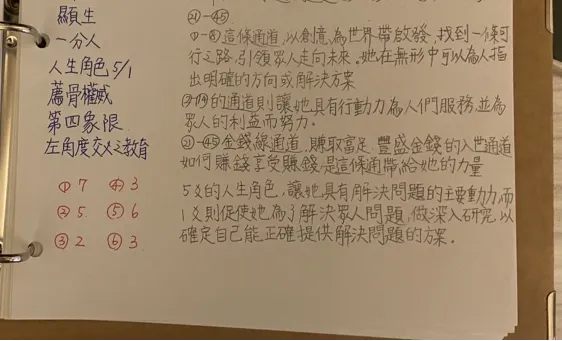 顯生
一分人
人生角色5/1
薦骨權威
第四象限
左角度交叉之教育
① 7 ④ 3
② 5 ⑤ 6
③ 2 ⑥ 3
㉑-㊺
①-⑧這條通道,以創意,為世界帶啟發,找到一條可
行之路,引領眾人走向未來,她在無形中可以為人指
出明確的方向或解決方案
的通道則讓她具有行動力為人們服務,並為
眾人的利益而努力。
㉑-㊺金錢線通道,賺取富足,豐盛金錢的入世通道
如何賺錢享受賺錢,是這條通帶給她的力量
5爻的人生角色,讓她具有解決問題的主要動力,而
1爻則促使她為了解決眾人問題,做深入研究,以
確定自己能正確提供解決問題的方案。